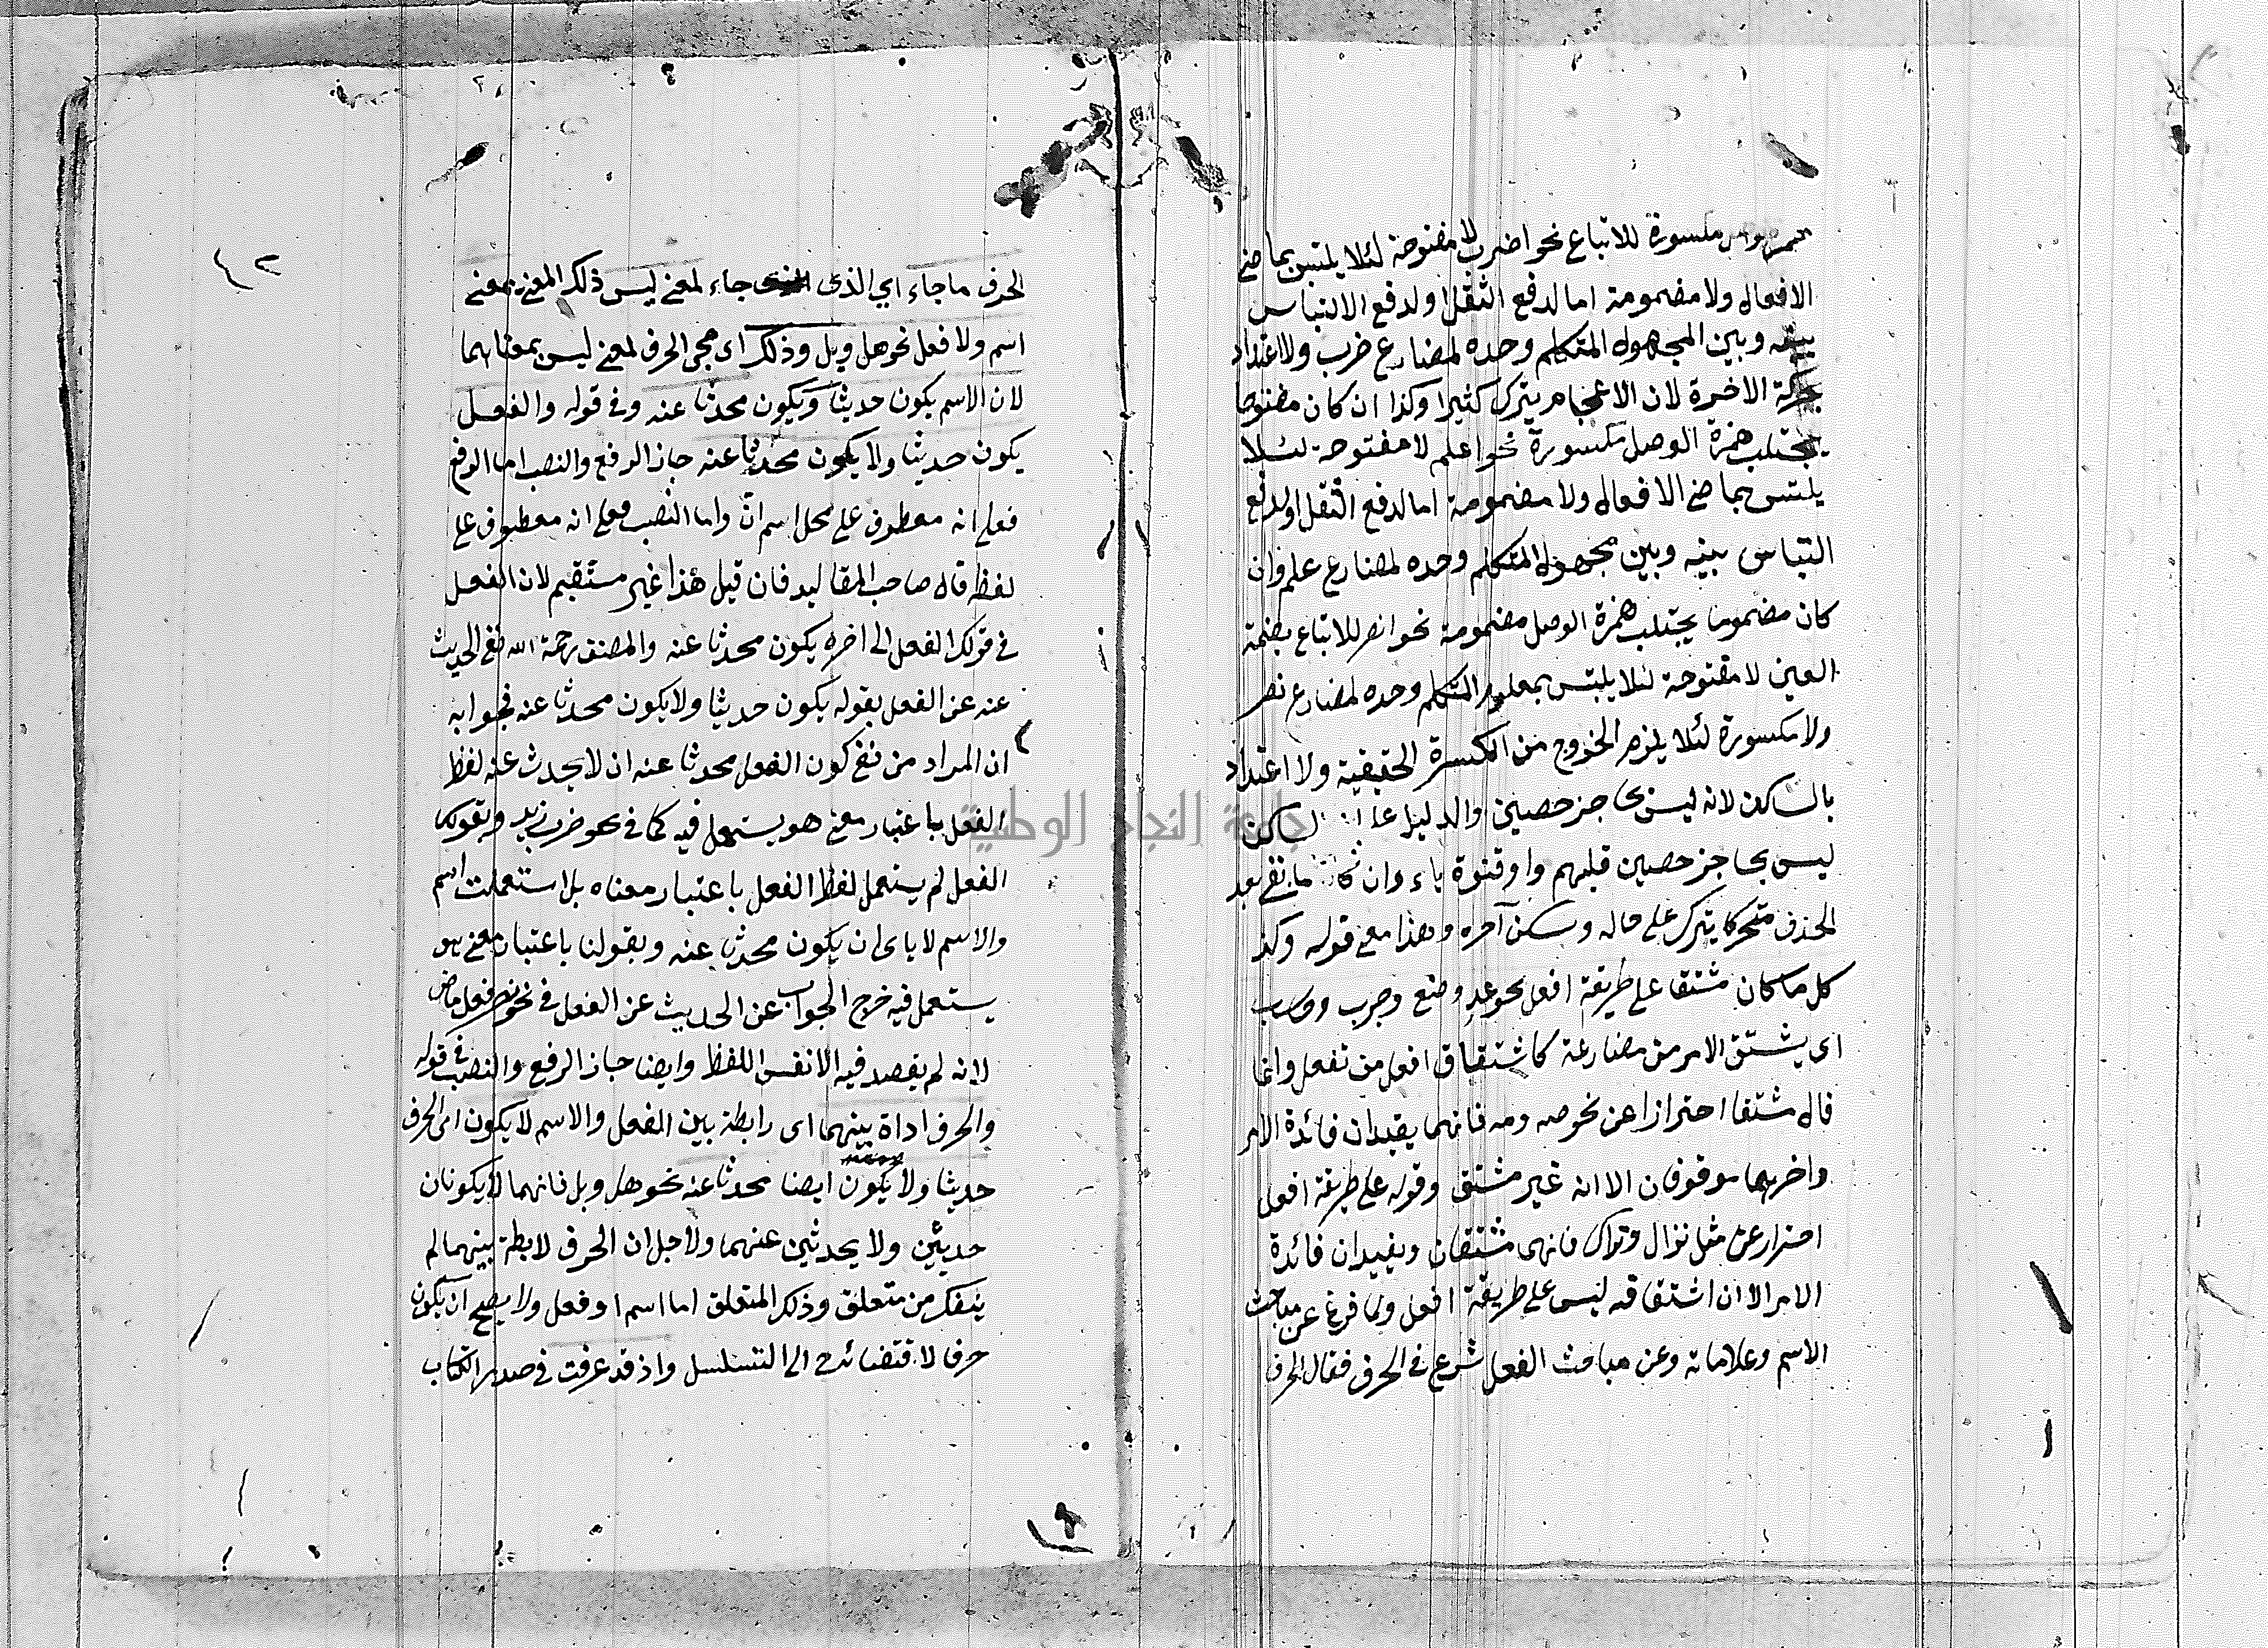 همزة الوصل مكسورة للاتباع نحو اضرب لا مفتوحة لئلا يلتبس بماضي
الافعال ولا مضمومة اما لدفع الثقل او لدفع الالتباس
بينه وبين المجهول المتكلم وحده لمضارع ضرب ولا اعتداد
بحركة الاخرة لان الاعجام يترك كثيرا وكذا ان كان مفتوحا
يجتلب همزة الوصل مكسورة نحو اعلم لا مفتوحة لئلا
يلتبس بماضي الافعال ولا مضمومة اما لدفع الثقل او لدفع
التباس بينه وبين مجهول المتكلم وحده لمضارع علم وان
كان مضموما يجتلب همزة الوصل مضمومة نحو انصر للاتباع بضمة
العين لا مفتوحة لئلا يلتبس بمعلوم المتكلم وحده لمضارع نصر
ولا مكسورة لئلا يلزم الخروج من الكسرة الحقيقية ولا اعتداد
بالساكن لانه ليس بحاجز حصين والدليل على ان الساكن
ليس بحاجز حصين قلبهم واو قنوة ياء وان كان ما بقي بعد
الحذف متحركا يترك على حاله وسكن آخره وهذا معنى قوله وكذ
كل ما كان مشتقا على طريقة افعل نحو عد وضع وجرب
اى يشتق الامر من مضارعه كاشتقاق افعل من تفعل وانما
قال مشتقا احترازا عن نحو صه ومه فانهما يفيدان فائدة الامر
واخرهما موقوفان الا انه غير مشتق وقوله على طريقة افعل
احتراز عن مثل نزال وتراك فانهما مشتقان ويفيدان فائدة
الامر الا ان اشتقاقه ليس على طريقة افعل ولما فرغ عن مباحث
الاسم وعلاماته وعن مباحث الفعل شرع في الحرف فقال الحرف
٤٢
الحرف ما جاء اي الذى جاء لمعنى ليس ذلك المعنى بمعنى
اسم ولا فعل نحو هل وبل وذلك اى مجى الحرف لمعنى ليس بمعناهما
لان الاسم يكون حديثا ويكون محدثا عنه وفى قوله والفعل
يكون حديثا ولا يكون محدثا عنه جاز الرفع والنصب اما الرفع
فعلى انه معطوف على محل اسم انّ واما النصب فعلى انه معطوف على
لفظه قال صاحب المقاليد فان قيل هذا غير مستقيم لان الفعل
فى قولك الفعل الى اخره يكون محدثا عنه والمصنف رحمة الله نفى الحديث
عنه عن الفعل بقوله يكون حديثا ولا يكون محدثا عنه فجوابه
ان المراد من نفى كون الفعل محدثا عنه ان لا يحدث عنه لفظ
الفعل باعتبار معنى هو يستعمل فيه كما فى نحو ضرب زيد وبقولك
الفعل لم يستعمل لفظ الفعل باعتبار معناه بل استعملت اسم
والاسم لا يابى ان يكون محدثا عنه وبقولنا باعتبار معنى هو
يستعمل فيه خرج الجواب عن الحديث عن الفعل فى نحو نصر فعل ماض
لانه لم يقصد فيه الا نفس اللفظ وايضا جاز الرفع والنصب فى قوله
والحرف اداة بينهما اى رابطة بين الفعل والاسم لا يكون اى الحرف
حديثا ولا يكون ايضا محدثا عنه نحو هل وبل فانهما لا يكونان
حديثين ولا يحدثين عنهما ولاجل ان الحرف لابطة بينهما لم
ينفك من متعلق وذلك المتعلق اما اسم او فعل ولا يصح ان يكون
حرفا لاقتضائه الى التسلسل واذ قد عرفت فى صدر الكتاب
جامعة النجاح الوطنية